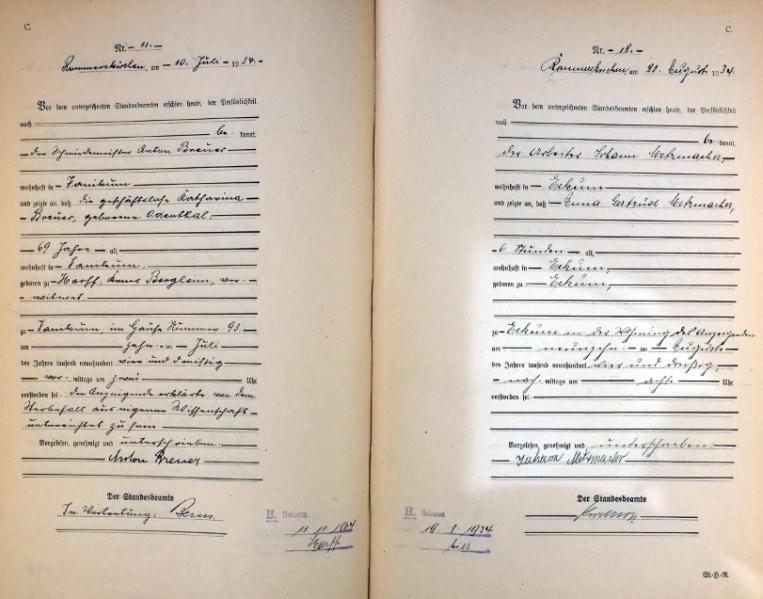 C.
Nr. 11.
Rommerskirchen, am 10. Juli 1934.
Vor dem unterzeichneten Standesbeamten erschien heute, der Persönlichkeit
nach
be kannt,
der Schmiedemeister Anton Breuer
wohnhaft in Vanikum
und zeigte an, daß die geschäftslose Katharina
Breuer, geborene Odenthal.
69 Jahre alt
wohnhaft in Vanikum.
geboren zu Harff, Bergheim, ver-
witwet
zu Vanikum, im Hause Nummer 93
am zehn im Juli
des Jahres tausend neunhundert vier und dreißig
vor mittags um zwei Uhr
verstorben sei. der Anzeigende erklärte von dem
Sterbefall aus eigener Wissenschaft
unterrichtet zu sein
Vorgelesen, genehmigt und unterschrieben.
Anton Breuer
Der Standesbeamte
In Vertretung:
H. Geboren
Harff
C.
Nr. 12.
Rommerskirchen, am 20. August 1934.
Vor dem unterzeichneten Standesbeamten erschien heute, der Persönlichkeit
nach
be kannt,
der Arbeiter Johann Metzmacher,
wohnhaft in Eckum
und zeigte an, daß Anna Gertrud Metzmacher,
6 Stunden alt,
wohnhaft in Eckum,
geboren zu Eckum,
zu Eckum in der Wohnung des Anzeigenden
am neunzehn im August
des Jahres tausend neunhundert vier und dreißig,
nach mittags um acht Uhr
verstorben sei.
Vorgelesen, genehmigt und unterschrieben.
Johann Metzmacher
Der Standesbeamte
H. Geboren
19 8 1934
hier
St-H-R.